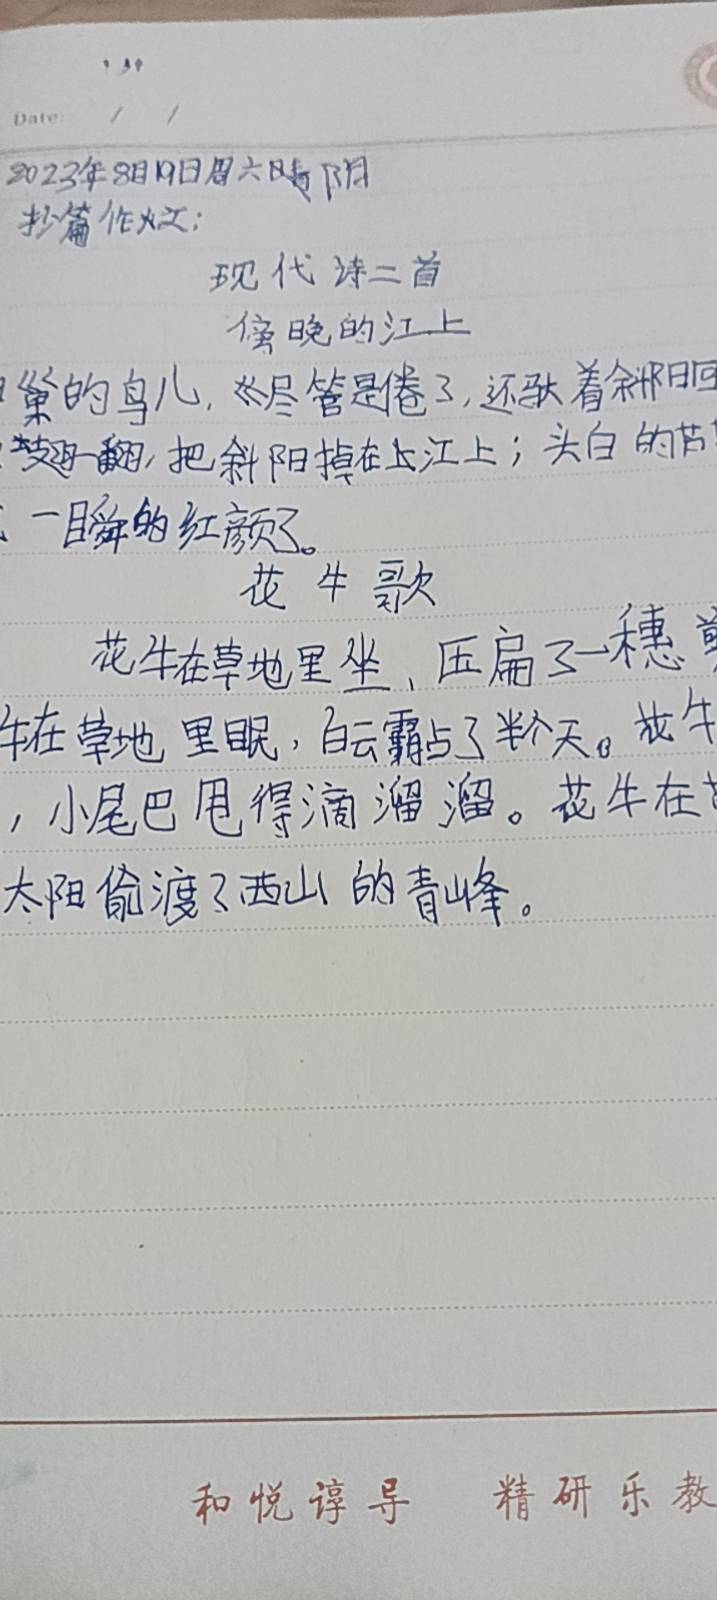 Date: / /
2023年8月19日周六晴阴
抄篇作文:
现代诗二首
傍晚的江上
巢的鸟儿,尽管是倦了,还驮着斜阳回
翅一翻,把斜阳掉在江上;头白的芦
一瞬的红颜了。
花牛歌
花牛在草地里坐、压扁了一穗
牛在草地里眠,白云霸占了半个天。花牛
,小尾巴甩得滴溜溜。花牛在
太阳偷渡了西山的青峰。
和悦谆导 精研乐教